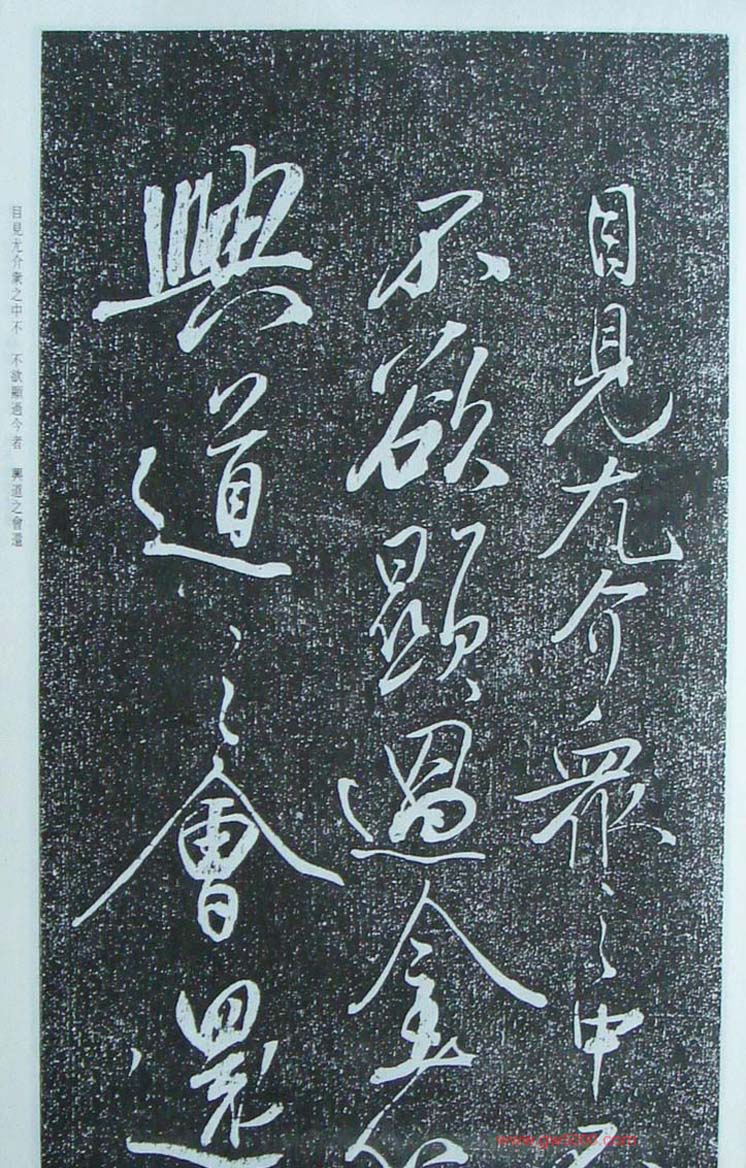 目見尤介衆之中不
不欲顯過今
興道之會還
目見尤介衆之中不 不欲顯過今者 興道之會還